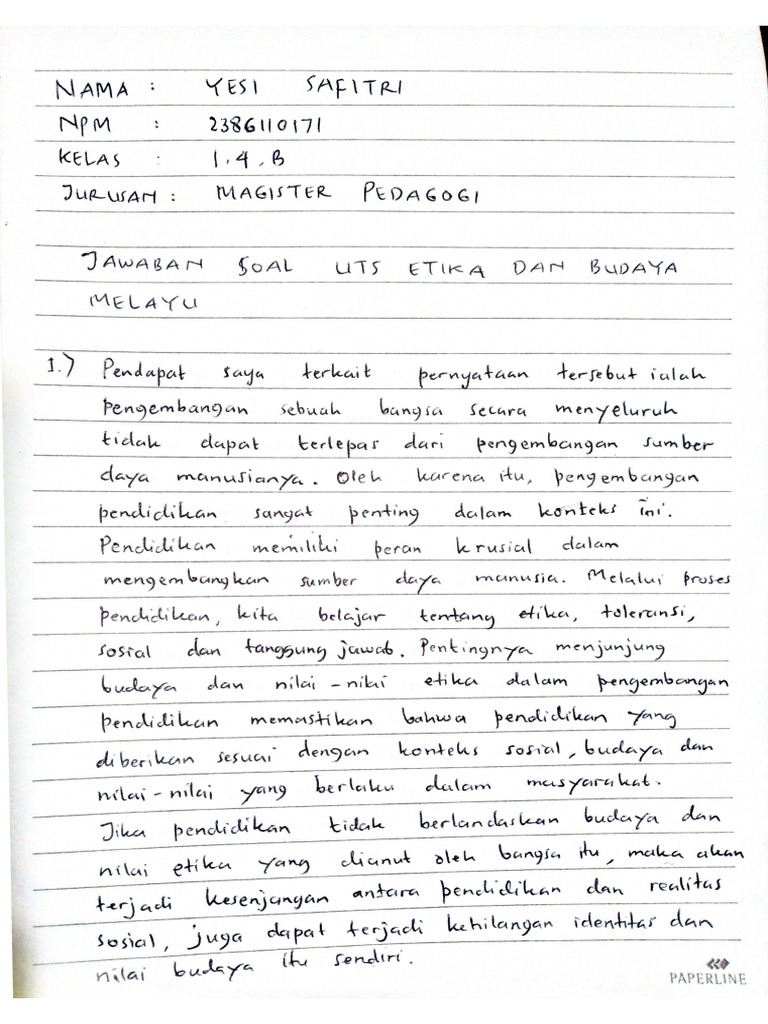 NAMA : YESI SAFITRI
NPM : 2386110171
KELAS : 1.4.B
JURUSAN : MAGISTER PEDAGOGI
JAWABAN SOAL UTS ETIKA DAN BUDAYA
MELAYU
1.) Pendapat saya terkait pernyataan tersebut ialah
pengembangan sebuah bangsa secara menyeluruh
tidak dapat terlepas dari pengembangan sumber
daya manusianya. Oleh karena itu, pengembangan
pendidikan sangat penting dalam konteks ini.
Pendidikan memiliki peran krusial dalam
mengembangkan sumber daya manusia. Melalui proses
pendidikan, kita belajar tentang etika, toleransi,
sosial dan tanggung jawab. Pentingnya menjunjung
budaya dan nilai-nilai etika dalam pengembangan
pendidikan memastikan bahwa pendidikan yang
diberikan sesuai dengan konteks sosial, budaya dan
nilai-nilai yang berlaku dalam masyarakat.
Jika pendidikan tidak berlandaskan budaya dan
nilai etika yang dianut oleh bangsa itu, maka akan
terjadi kesenjangan antara pendidikan dan realitas
sosial, juga dapat terjadi kehilangan identitas dan
nilai budaya itu sendiri.
PAPERLINE